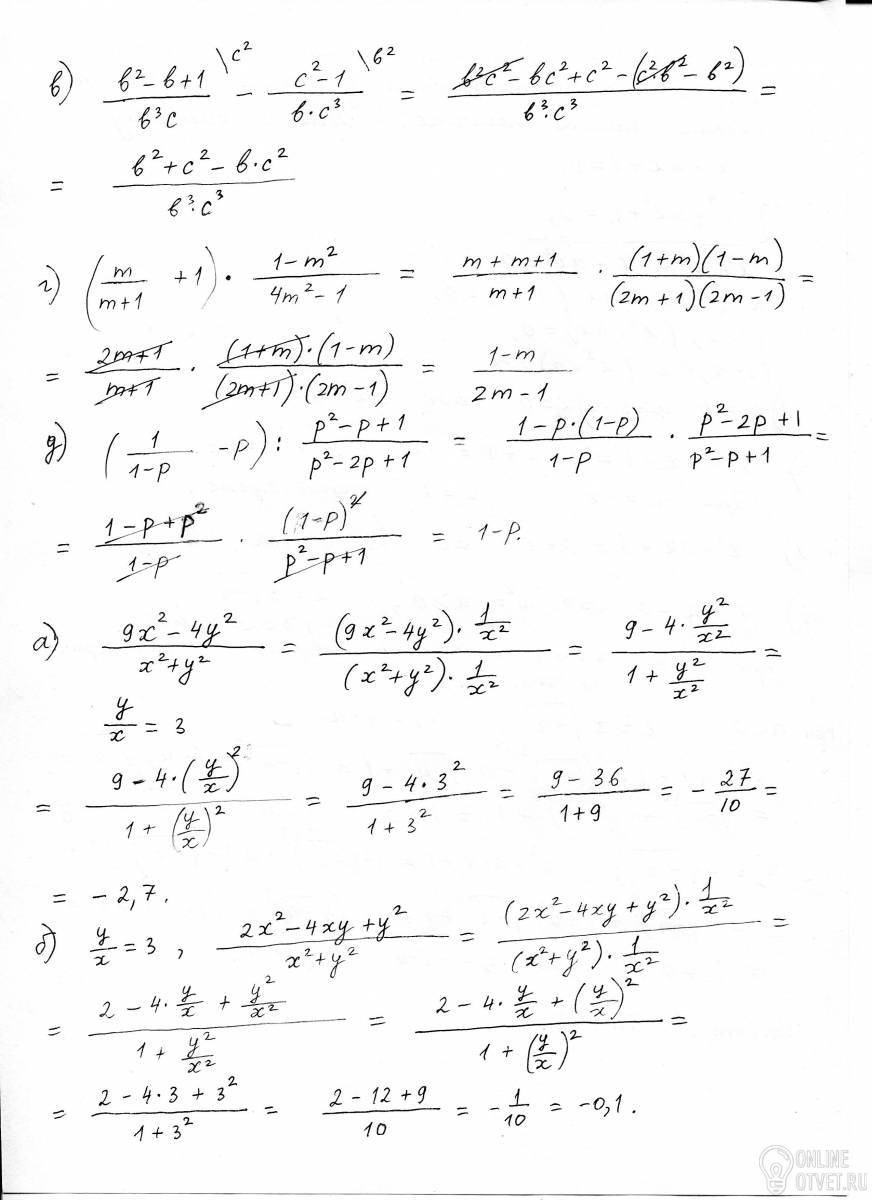 в) (в²-в+1)/(в³c) \c² - (c²-1)/(в·c³) \в² = (в²c²-вc²+c²-(c²·в²-в²))/(в³·c³) =
= (в²+c²-в·c²)/(в³·c³)
г) (m/(m+1) +1)· (1-m²)/(4m²-1) = (m+m+1)/(m+1) · ((1+m)(1-m))/((2m+1)(2m-1)) =
= (2m+1)/(m+1) · ((1+m)·(1-m))/((2m+1)·(2m-1)) = (1-m)/(2m-1)
д) (1/(1-p) -p) : (p²-p+1)/(p²-2p+1) = (1-p·(1-p))/(1-p) · (p²-2p+1)/(p²-p+1) =
= (1-p+p²)/(1-p) · (1-p)²/(p²-p+1) = 1-p.
а) (9x²-4y²)/(x²+y²) = ((9x²-4y²)·1/x²)/((x²+y²)·1/x²) = (9-4·y²/x²)/(1+y²/x²) =
y/x = 3
= (9-4·(y/x)²)/(1+(y/x)²) = (9-4·3²)/(1+3²) = (9-36)/(1+9) = -27/10 =
= -2,7.
б) y/x = 3, (2x²-4xy+y²)/(x²+y²) = ((2x²-4xy+y²)·1/x²)/((x²+y²)·1/x²) =
= (2-4·y/x+y²/x²)/(1+y²/x²) = (2-4·y/x+(y/x)²)/(1+(y/x)²) =
= (2-4·3+3²)/(1+3²) = (2-12+9)/10 = -1/10 = -0,1.
ONLINE
OTVET.RU